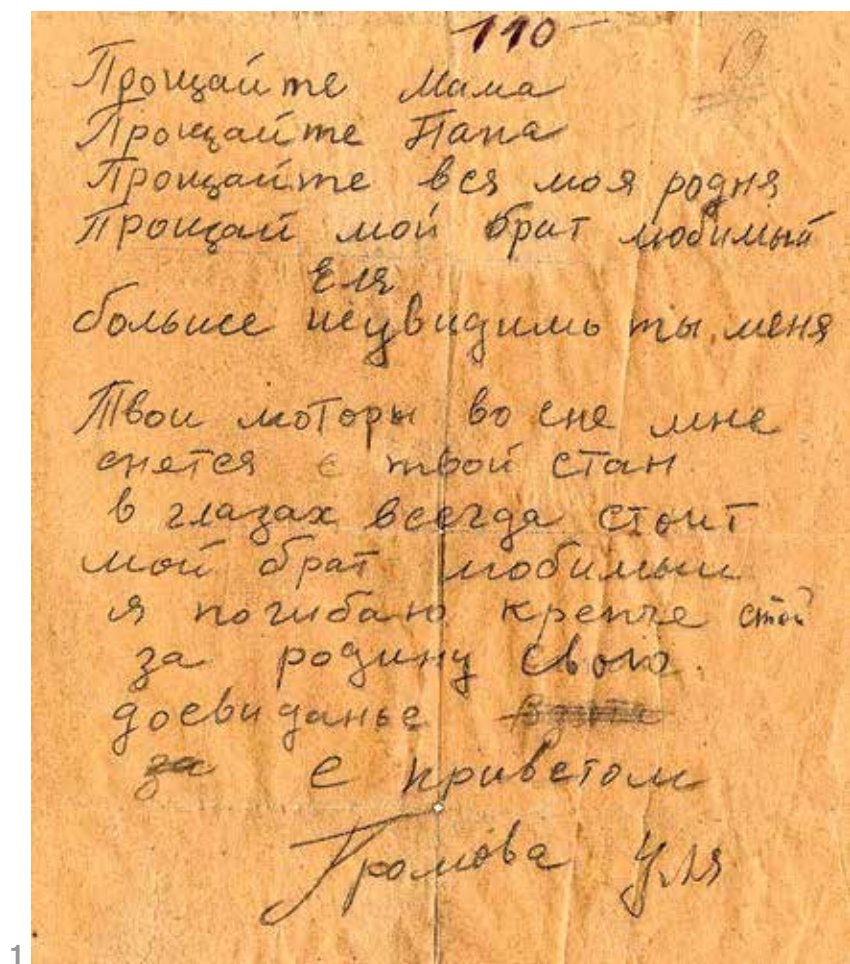 110
19
Прощайте Мама
Прощайте Папа
Прощайте вся моя родня
Прощай мой брат любимый
Еля
больше неувидишь ты меня
Твои моторы во сне мне
снется твой стан
в глазах всегда стоит
мой брат любимый
я погибаю крепче стой
за родину свою.
досвиданье
за
С приветом
Громова Уля
1